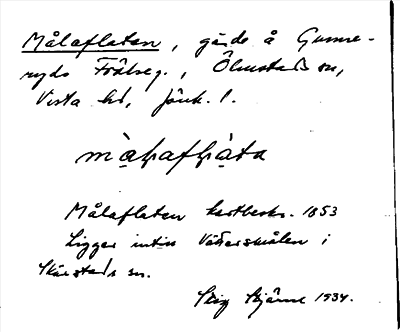 Målaflaten, gärde å Gunne-
ryds Frälseg., Ölmstads sn,
Vista hd, Jönk. l.
Målaflaten kartbeskr. 1853
Ligger intill Vättersmålen i
Skärstads sn.
Stig Stjärne 1934.